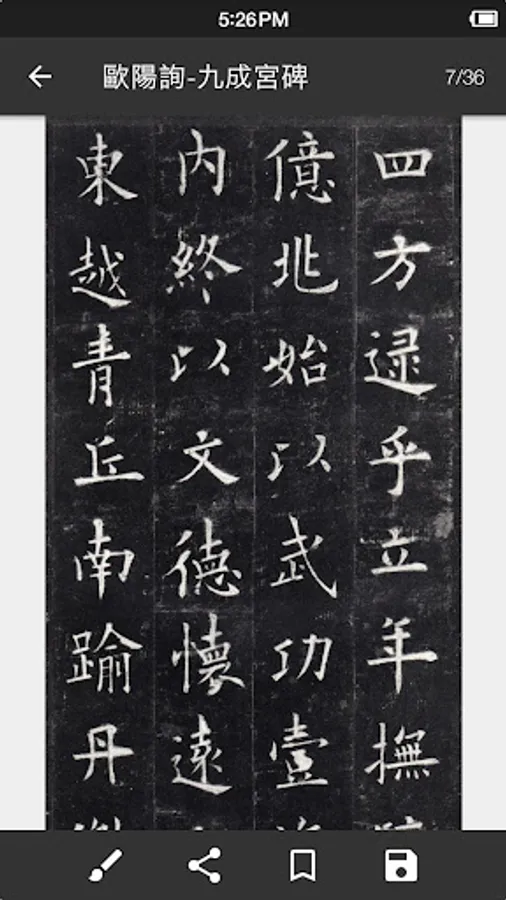 5:26PM
歐陽詢-九成宮碑
7/36
四方逯乎立年撫
億兆始以武功壹
内終以文德懷遠
東越青丘南踰丹